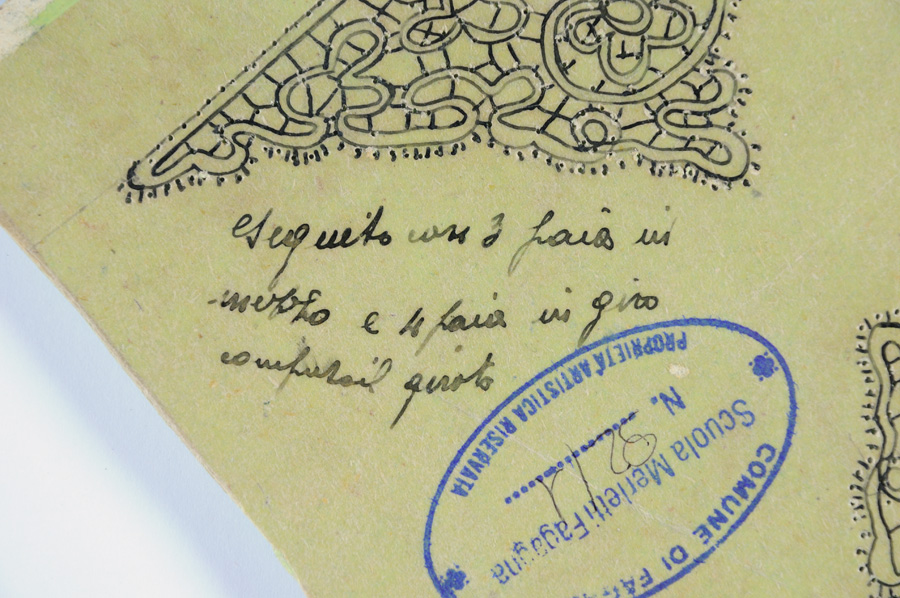 Eseguito con 3 paia in
mezzo e 4 paia in giro
compreso il giroto
COMUNE DI FAGAGNA
Scuola Merletti Fagagna
N.
PROPRIETÀ ARTISTICA RISERVATA